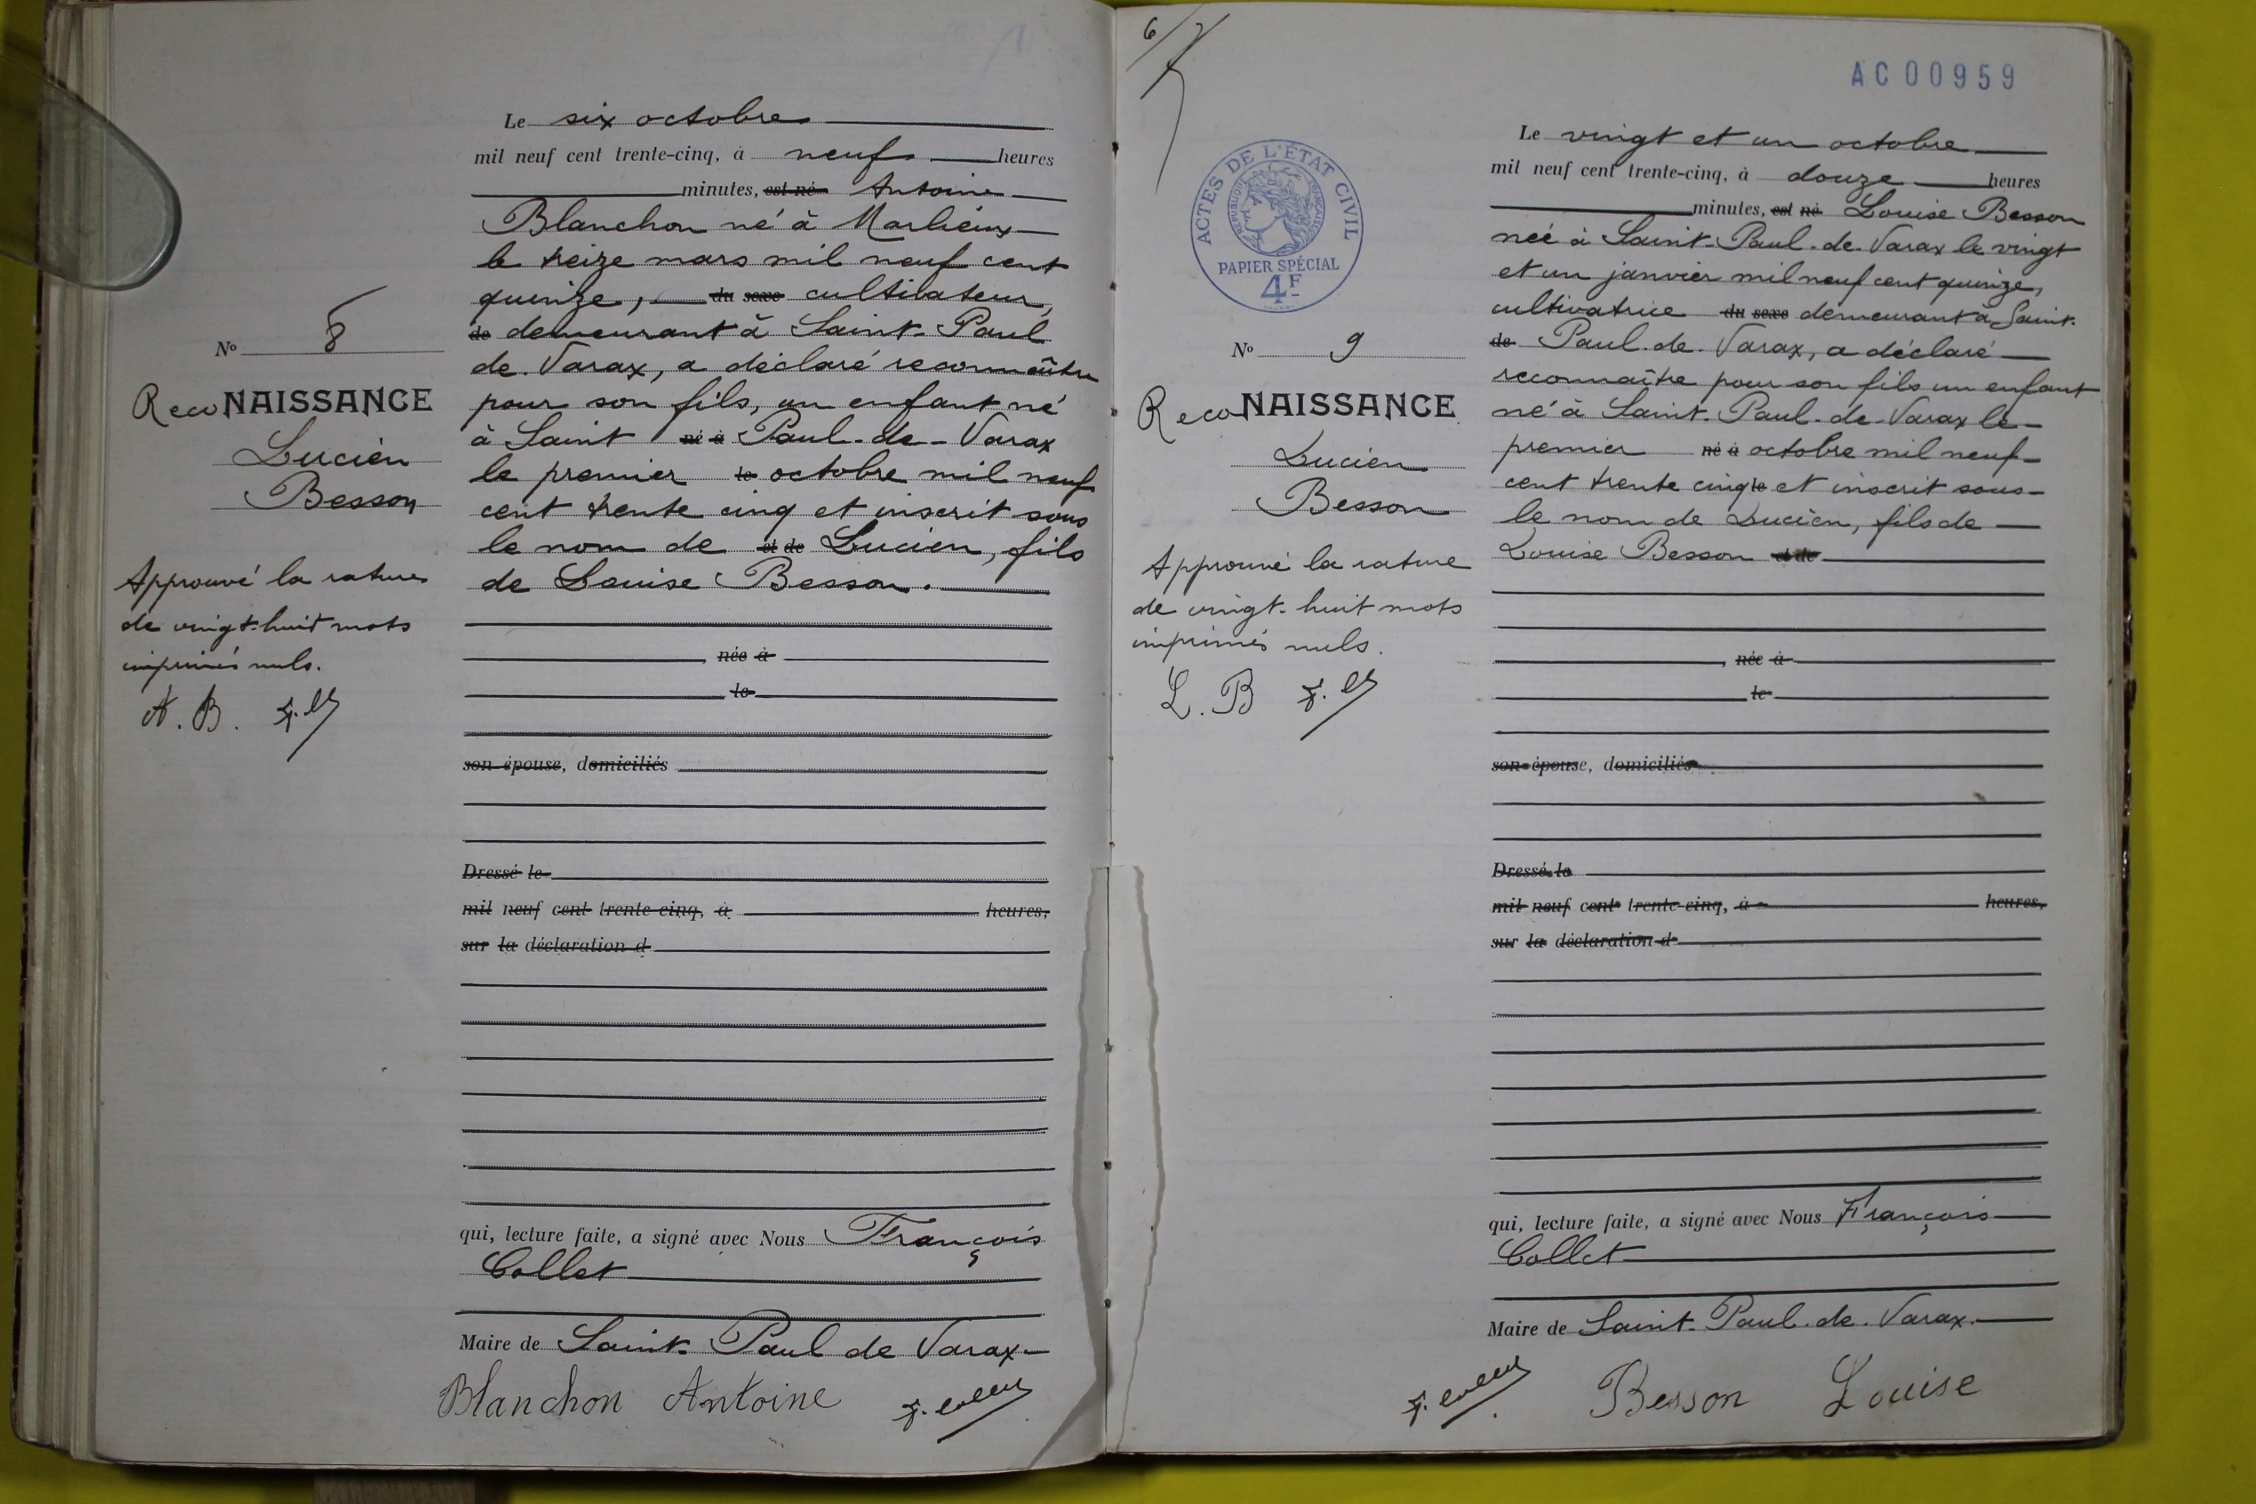 Le six octobre
mil neuf cent trente-cinq, à neuf heures
minutes, est né Antoine
Blanchon né à Marlieux
le treize mars mil neuf cent
quinize, du sexe cultivateur,
de demeurant à Saint-Paul
de Varax, a déclaré reconnaître
pour son fils, un enfant né
à Saint né à Paul-de-Varax
le premier le octobre mil neuf
cent trente cinq et inscrit sous
le nom de et de Lucien, fils
de Louise Besson.
née à
le
son épouse, domiciliés
Dressé le
mil neuf cent trente-cinq, à heures,
sur la déclaration d
qui, lecture faite, a signé avec Nous François
Collet
Maire de Saint-Paul de Varax
Blanchon Antoine F. Collet
N° 8
RecoNAISSANCE
Lucien
Besson
Approuvé la rature
de vingt-huit mots
imprimés nuls.
A. B.
6
AC00959
ACTES DE L'ÉTAT CIVIL
RÉPUBLIQUE FRANÇAISE
PAPIER SPÉCIAL
4F
N° 9
RecoNAISSANCE
Lucien
Besson
Approuvé la rature
de vingt-huit mots
imprimés nuls.
L. B
Le vingt et un octobre
mil neuf cent trente-cinq, à douze heures
minutes, est né Louise Besson
née à Saint-Paul-de-Varax le vingt
et un janvier mil neuf cent quinze,
cultivatrice du sexe demeurant à Saint-
de Paul-de-Varax, a déclaré
reconnaître pour son fils un enfant
né à Saint-Paul-de-Varax le
premier né à octobre mil neuf
cent trente cinq le et inscrit sous
le nom de Lucien, fils de
Louise Besson et de
née à
le
son épouse, domiciliés
Dressé le
mil neuf cent trente-cinq, à heures,
sur la déclaration d
qui, lecture faite, a signé avec Nous François
Collet
Maire de Saint-Paul-de-Varax.
F. Collet Besson Louise